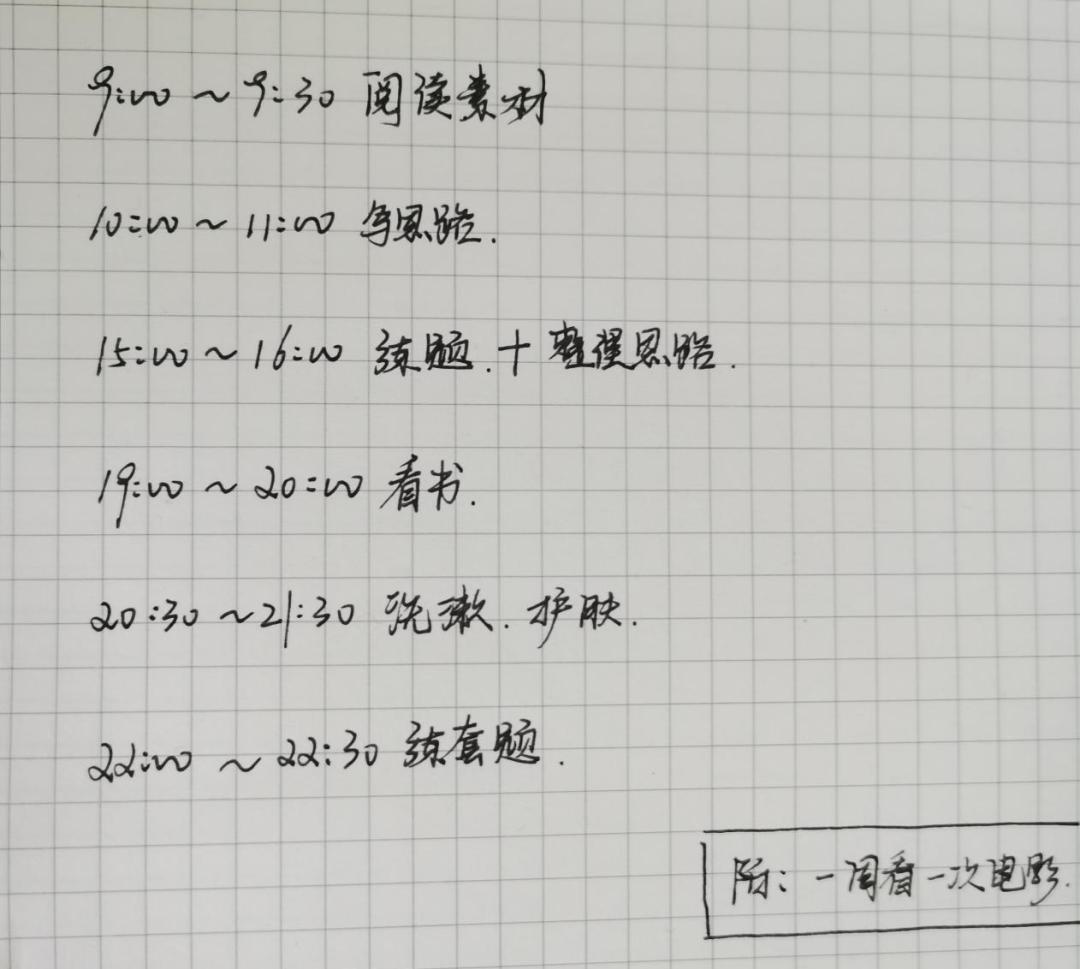 9:00~9:30 阅读素材
10:00~11:00 写思路.
15:00~16:00 练题.+整理思路.
19:00~20:00 看书.
20:30~21:30 洗漱.护肤.
22:00~22:30 练套题.
附:一周看一次电影.